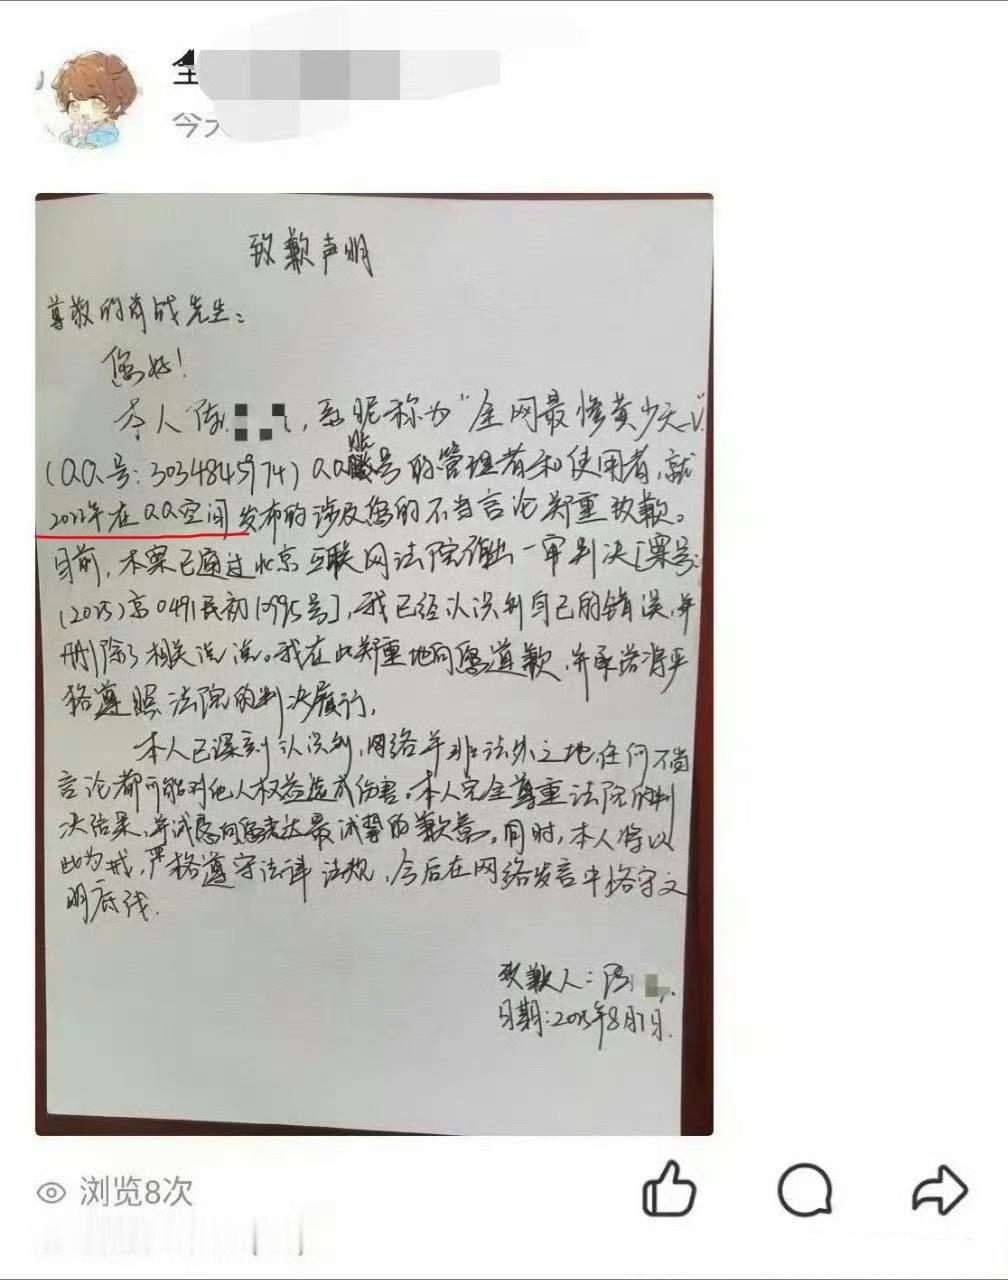 全
今天
致歉声明
尊敬的肖战先生：
您好！
本人陈，系昵称为“全网最惨黄少天_V”
(QQ号：3034845974) QQ账号的管理者和使用者，就
2022年在QQ空间发布的涉及您的不当言论郑重致歉。
目前，本案已通过北京互联网法院作出一审判决[案号：
(2025)京0491民初12995号]，我已经认识到自己的错误，并
删除了相关说说。我在此郑重地向您道歉，并承诺将严
格遵照法院的判决履行，
本人已深刻认识到，网络并非法外之地，任何不当
言论都可能对他人权益造成伤害。本人完全尊重法院的判
决结果，并诚恳向您表达最诚挚的歉意。同时，本人将以
此为戒，严格遵守法律法规，今后在网络发言中恪守文
明底线.
致歉人：陈
日期：2025年8月7日.
浏览8次